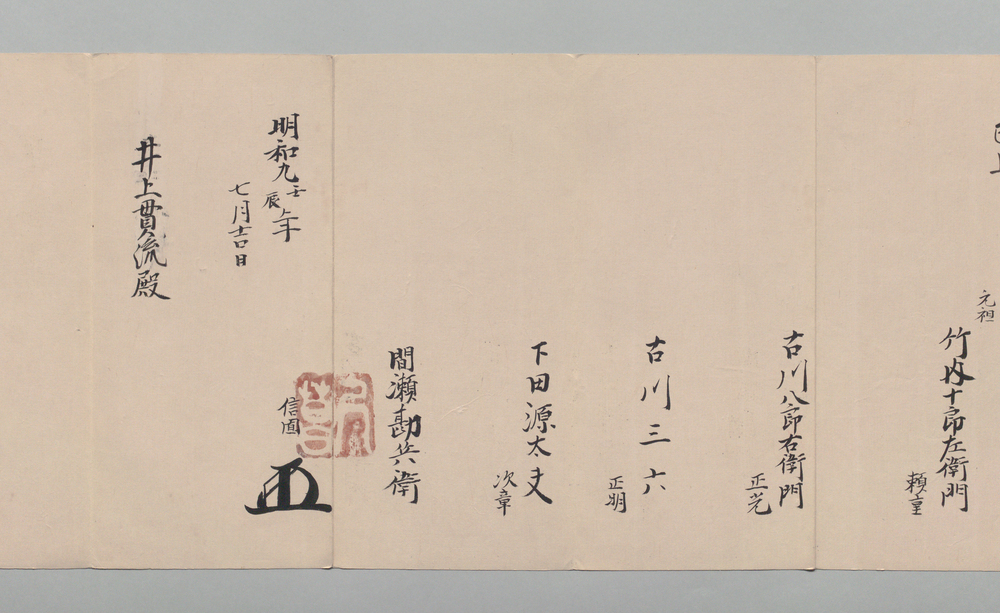 元祖
竹内十郎左衛門
頼重
古川八郎右衛門
正光
古川三六
正明
下田源太夫
次章
間瀬勘兵衛
信圓
明和九壬辰年
七月吉日
井上貫流殿